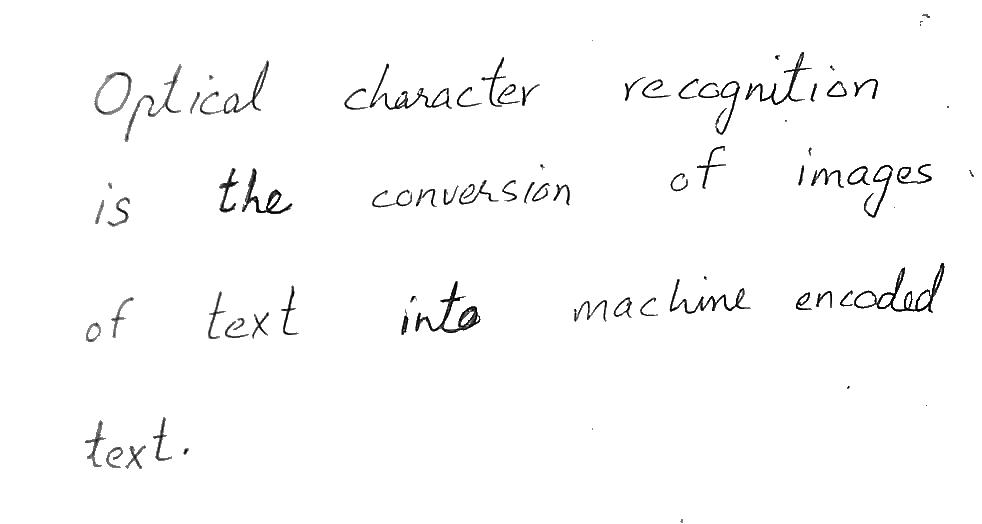 Optical character recognition
is the conversion of images
of text into machine encoded
text.